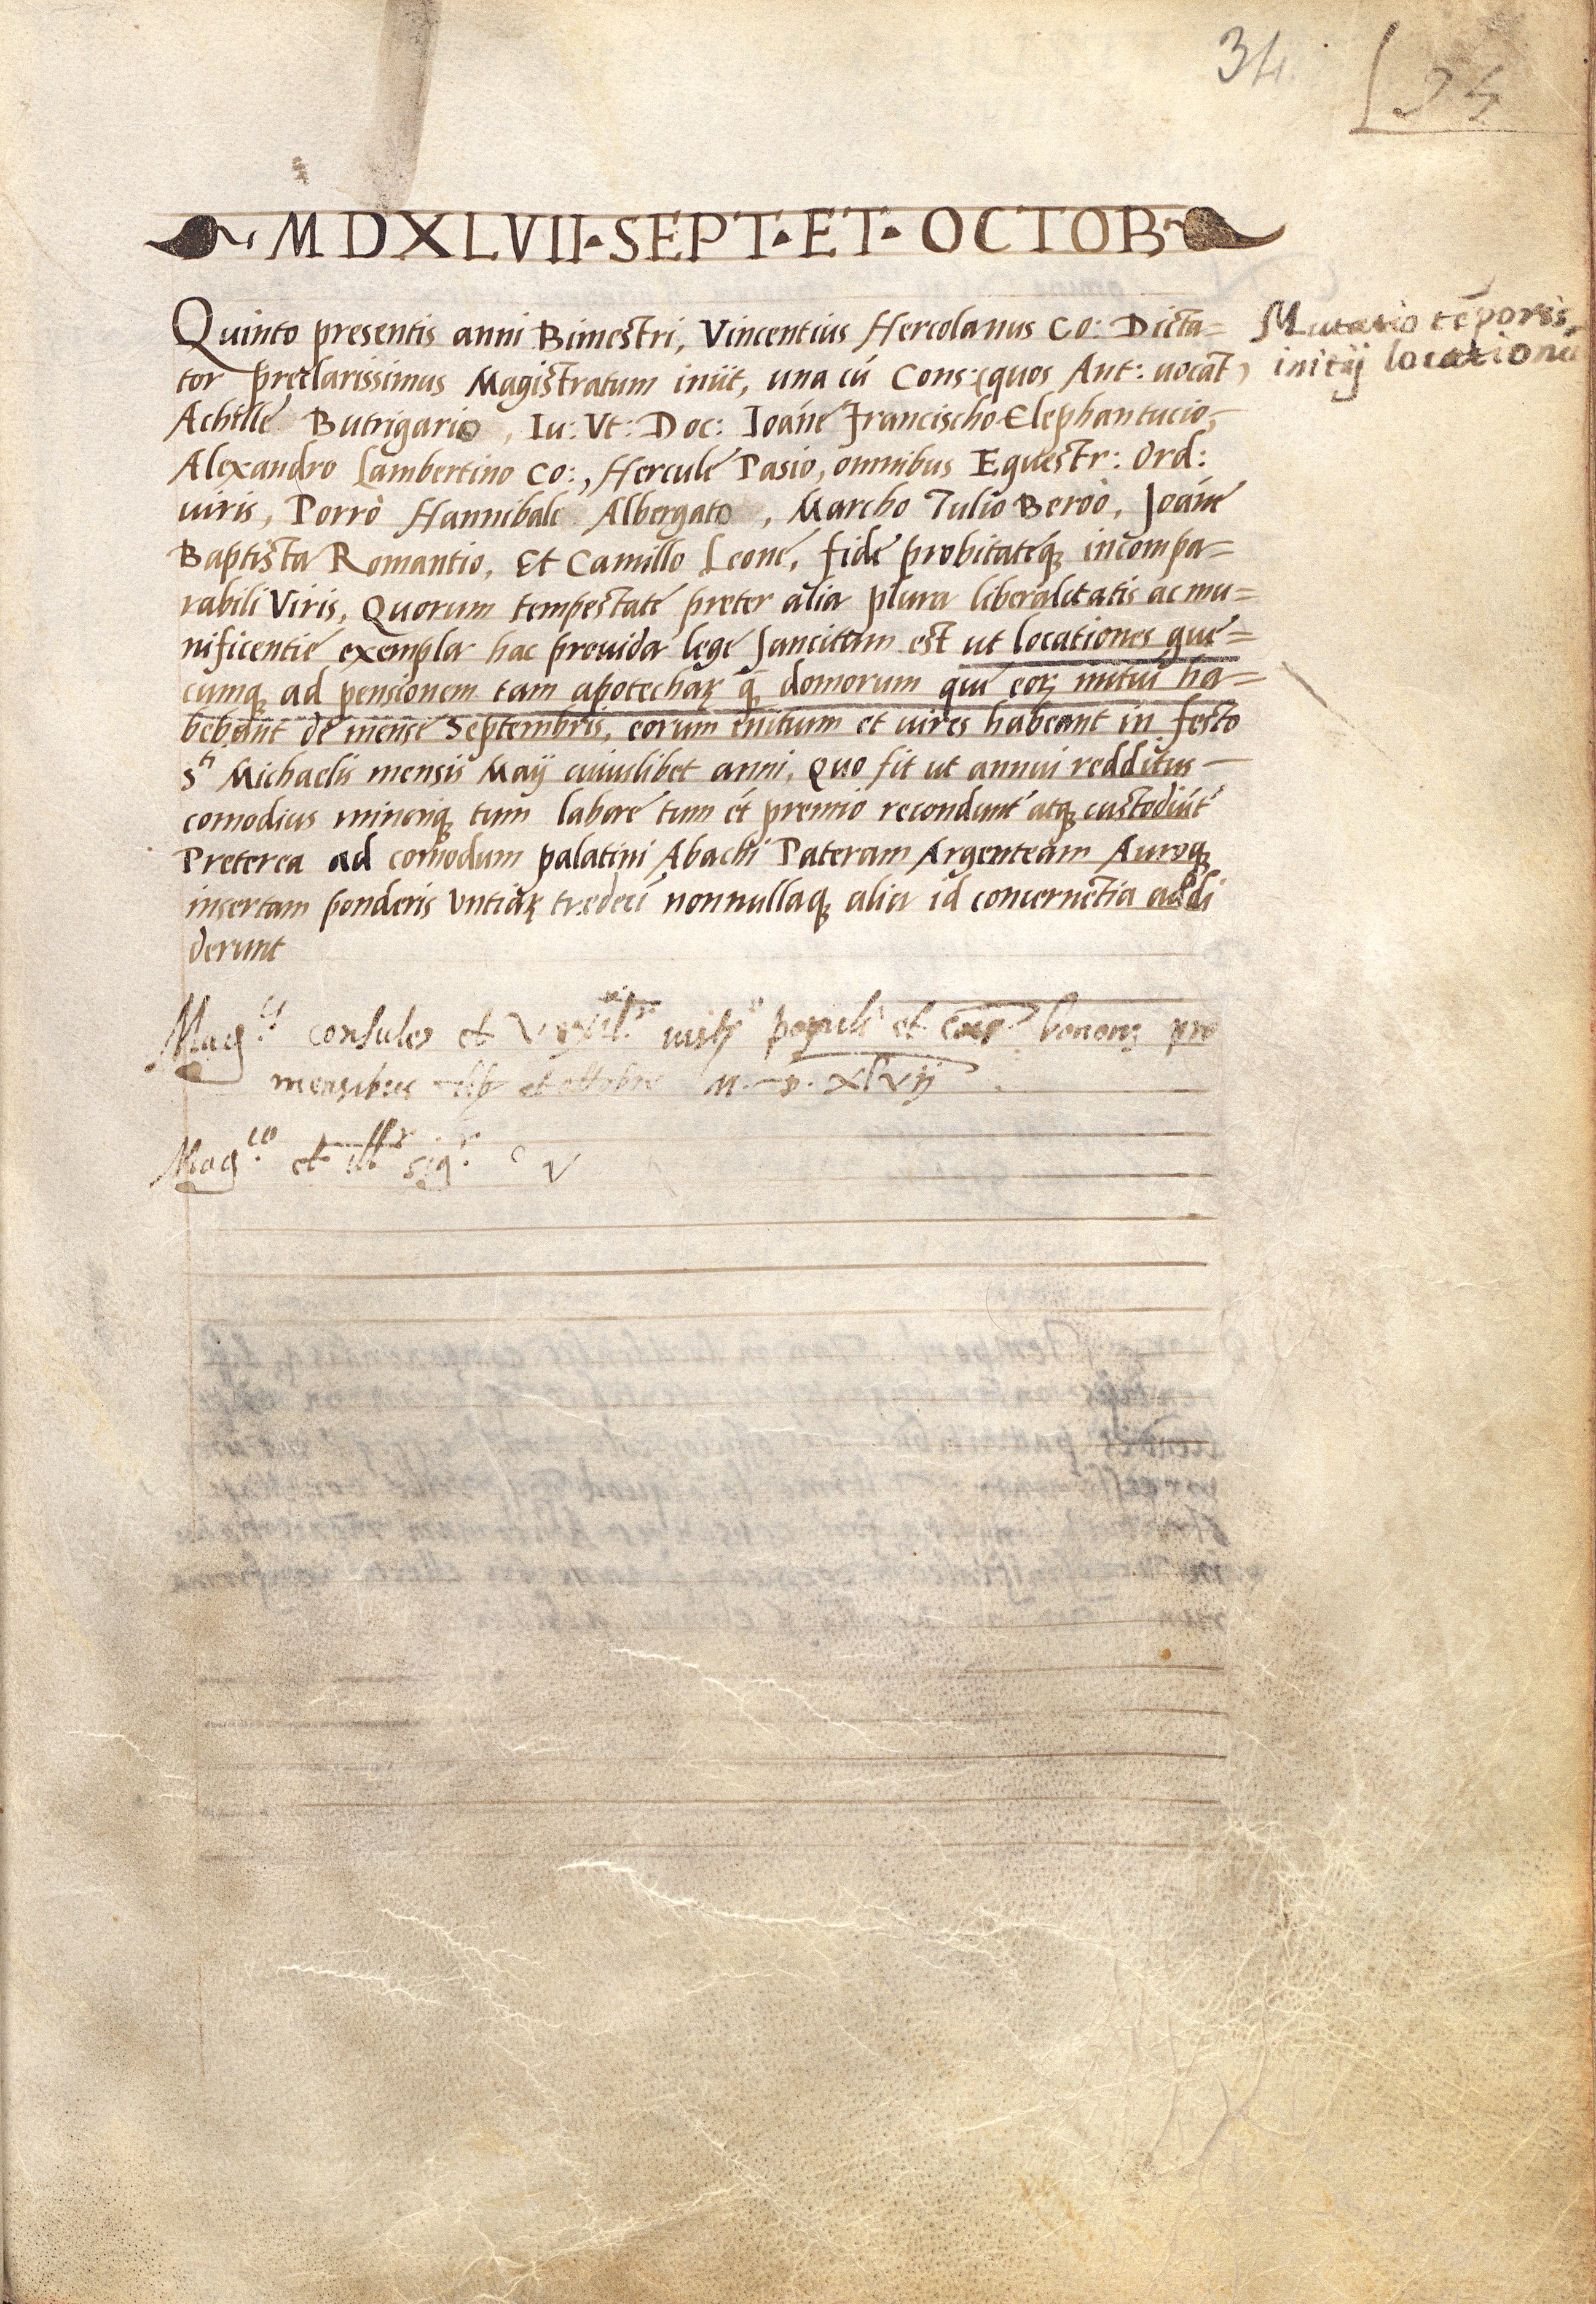 34.
34
MDXLVII · SEPT · ET · OCTOB
Quinto presentis anni Bimestri, Vincentius Hercolanus Co: Dicta=
tor preclarissimus Magistratum iniit, una cū Cons: (quos Ant: uocāt)
Achille Butrigario, Iu: Vt: Doc: Ioāne Francischo Elephantucio,
Alexandro Lambertino Co:, Hercule Pasio, omnibus Equestr: Ord:
uiris, Porrò Hannibale Albergato, Marcho Tulio Beroò, Joāne
Baptista Romantio, Et Camillo Leone, fide probitateq̨ incompa=
rabili Viris, Quorum tempestate preter alia plura liberalitatis ac mu=
nificentie exempla hac prouida lege sancitum est ut locationes que=
cumq̨ ad pensionem tam apotecharꝝ q̄ domorum que eorꝝ initiū ha=
bebant de mense Septembris, eorum initium et uires habeant in festo
Sti Michaelis mensis Maij cuiuslibet anni, Quo fit ut annui redditus
comodius minoriq̨ tum labore tum et premio recondunt atq̨ custodiūt
Preterea ad comodum palatini Abachi Pateram Argenteam Auroq̨
insertam ponderis Untiarꝝ tredeci nonnullaq̨ alia id concernētia addi
derunt
Mutatio tēporis
initij locationū
Mag.ci consules et Vexil.r iustie populi et bonon pro
mensibus et ottobris M. D. xlvij
Mag.co et ill.r sig.r V